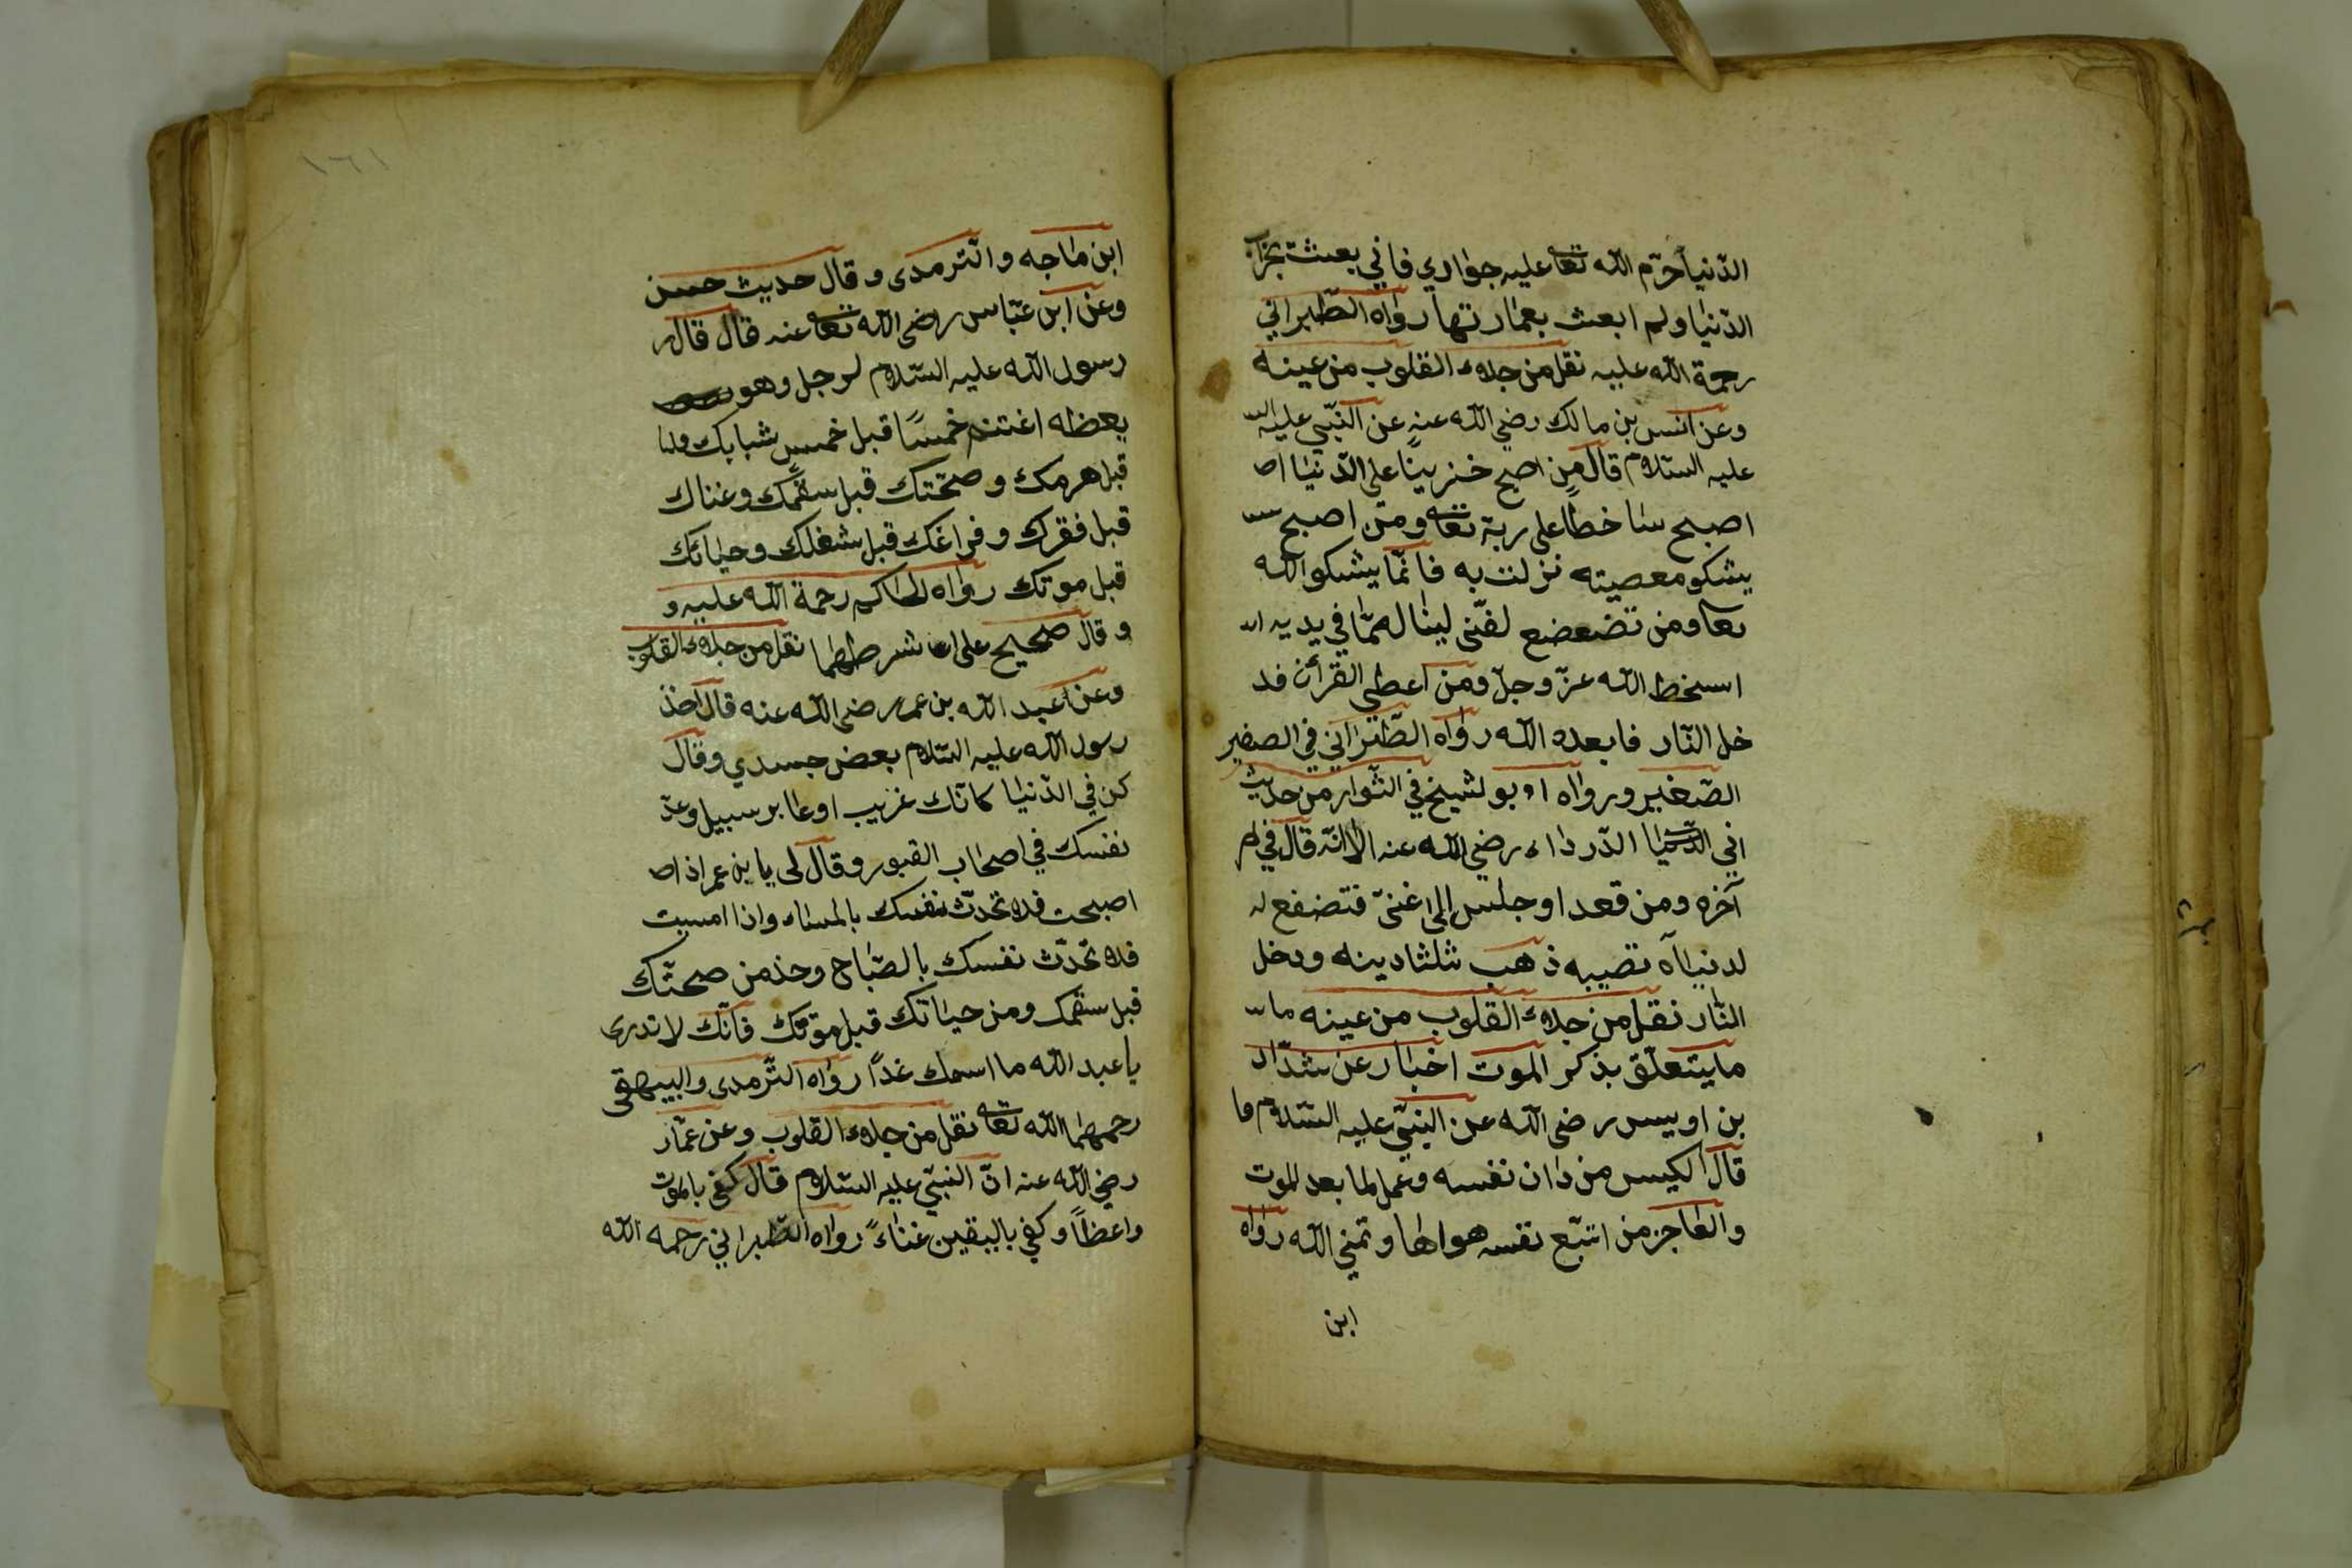 الدّنيا حرّم الله تعا عليه جواري فاني بعثت بخراب
الدّنيا ولم ابعث بعمارتها رواه الطّبراني
رحمة الله عليه نقل من جلاء القلوب من عينه
وعن انس بن مالك رضي الله عنه عن النّبّي عليه الس
عليه السّلام قال من اصبح حزينًا على الدّنيا اص
اصبح ساخطًا على ربّه تعا ومن اصبح
يشكو معصيته نزلت به فانّما يشكو الله
تعا ومن تضعضع لغنّى لينا له ممّا في يديه
اسخط الله عزّ وجلّ ومن اعطى القرأن فد
خل النّار فابعده الله رواه الطّبراني في الصغير
الصّغير ورواه ابو لشيخ في الثّوار من حديث
ابي الدّرداء رضي الله عنه الّا انّه قال في
آخره ومن قعد او جلس الى غنىّ فتضفع له
لدنياآه تصيبه ذهب ثلثا دينه ودخل
النّار نقل من جلاء القلوب من عينه ما
ما يتعلّق بذكر الموت اخبار عن شدّاد
بن اويس رضي الله عن النبّي عليه السّلام ما
قال الكيس من دان نفسه وعمل لما بعد الموت
والعاجز من اتبّع نفسه هواها وتمني الله رواه
ابن
١٦١
ابن ماجه والتّرمدى وقال حديث حسن
وعن ابن عبّاس رضي الله تعا عنه قال قال ر
رسول الله عليه السّلام لرجل وهو
يعظه اغتنم خمسًا قبل خمس شبابك
قبل هرمك وصحّتك قبل سقمك وغناك
قبل فقرك وفراغك قبل شغلك وحياتك
قبل موتك رواه الحاكم رحمة الله عليه و
و قال صحيح على شرطهما نقل من جلاء القلوب
وعن عبد الله بن عمر رضي الله عنه قال اخذ
رسول الله عليه السّلام بعض جسدي وقال
كن في الدّنيا كانّك غريب او عابر سبيل وعدّ
نفسك في اصحاب القبور وقال لى يا بن عمر اذ اص
اصبحت فلا تحدّث نفسك بالمساء واذا امسيت
فلا تحدّث نفسك بالصّباح وخذ من صحتّك
قبل سقمك ومن حياتك قبل موتك فانّك لا تدرى
يا عبد الله ما اسمك غدًا رواه التّرمدى والبيهقى
رحمهما الله تعا نقل من جلاء القلوب وعن عمّار
رضي الله عنه انّ النبّي عليه السّلام قال كفى بالموت
واعظاً وكفي باليقين غناءً رواه الطّبراني رحمه الله